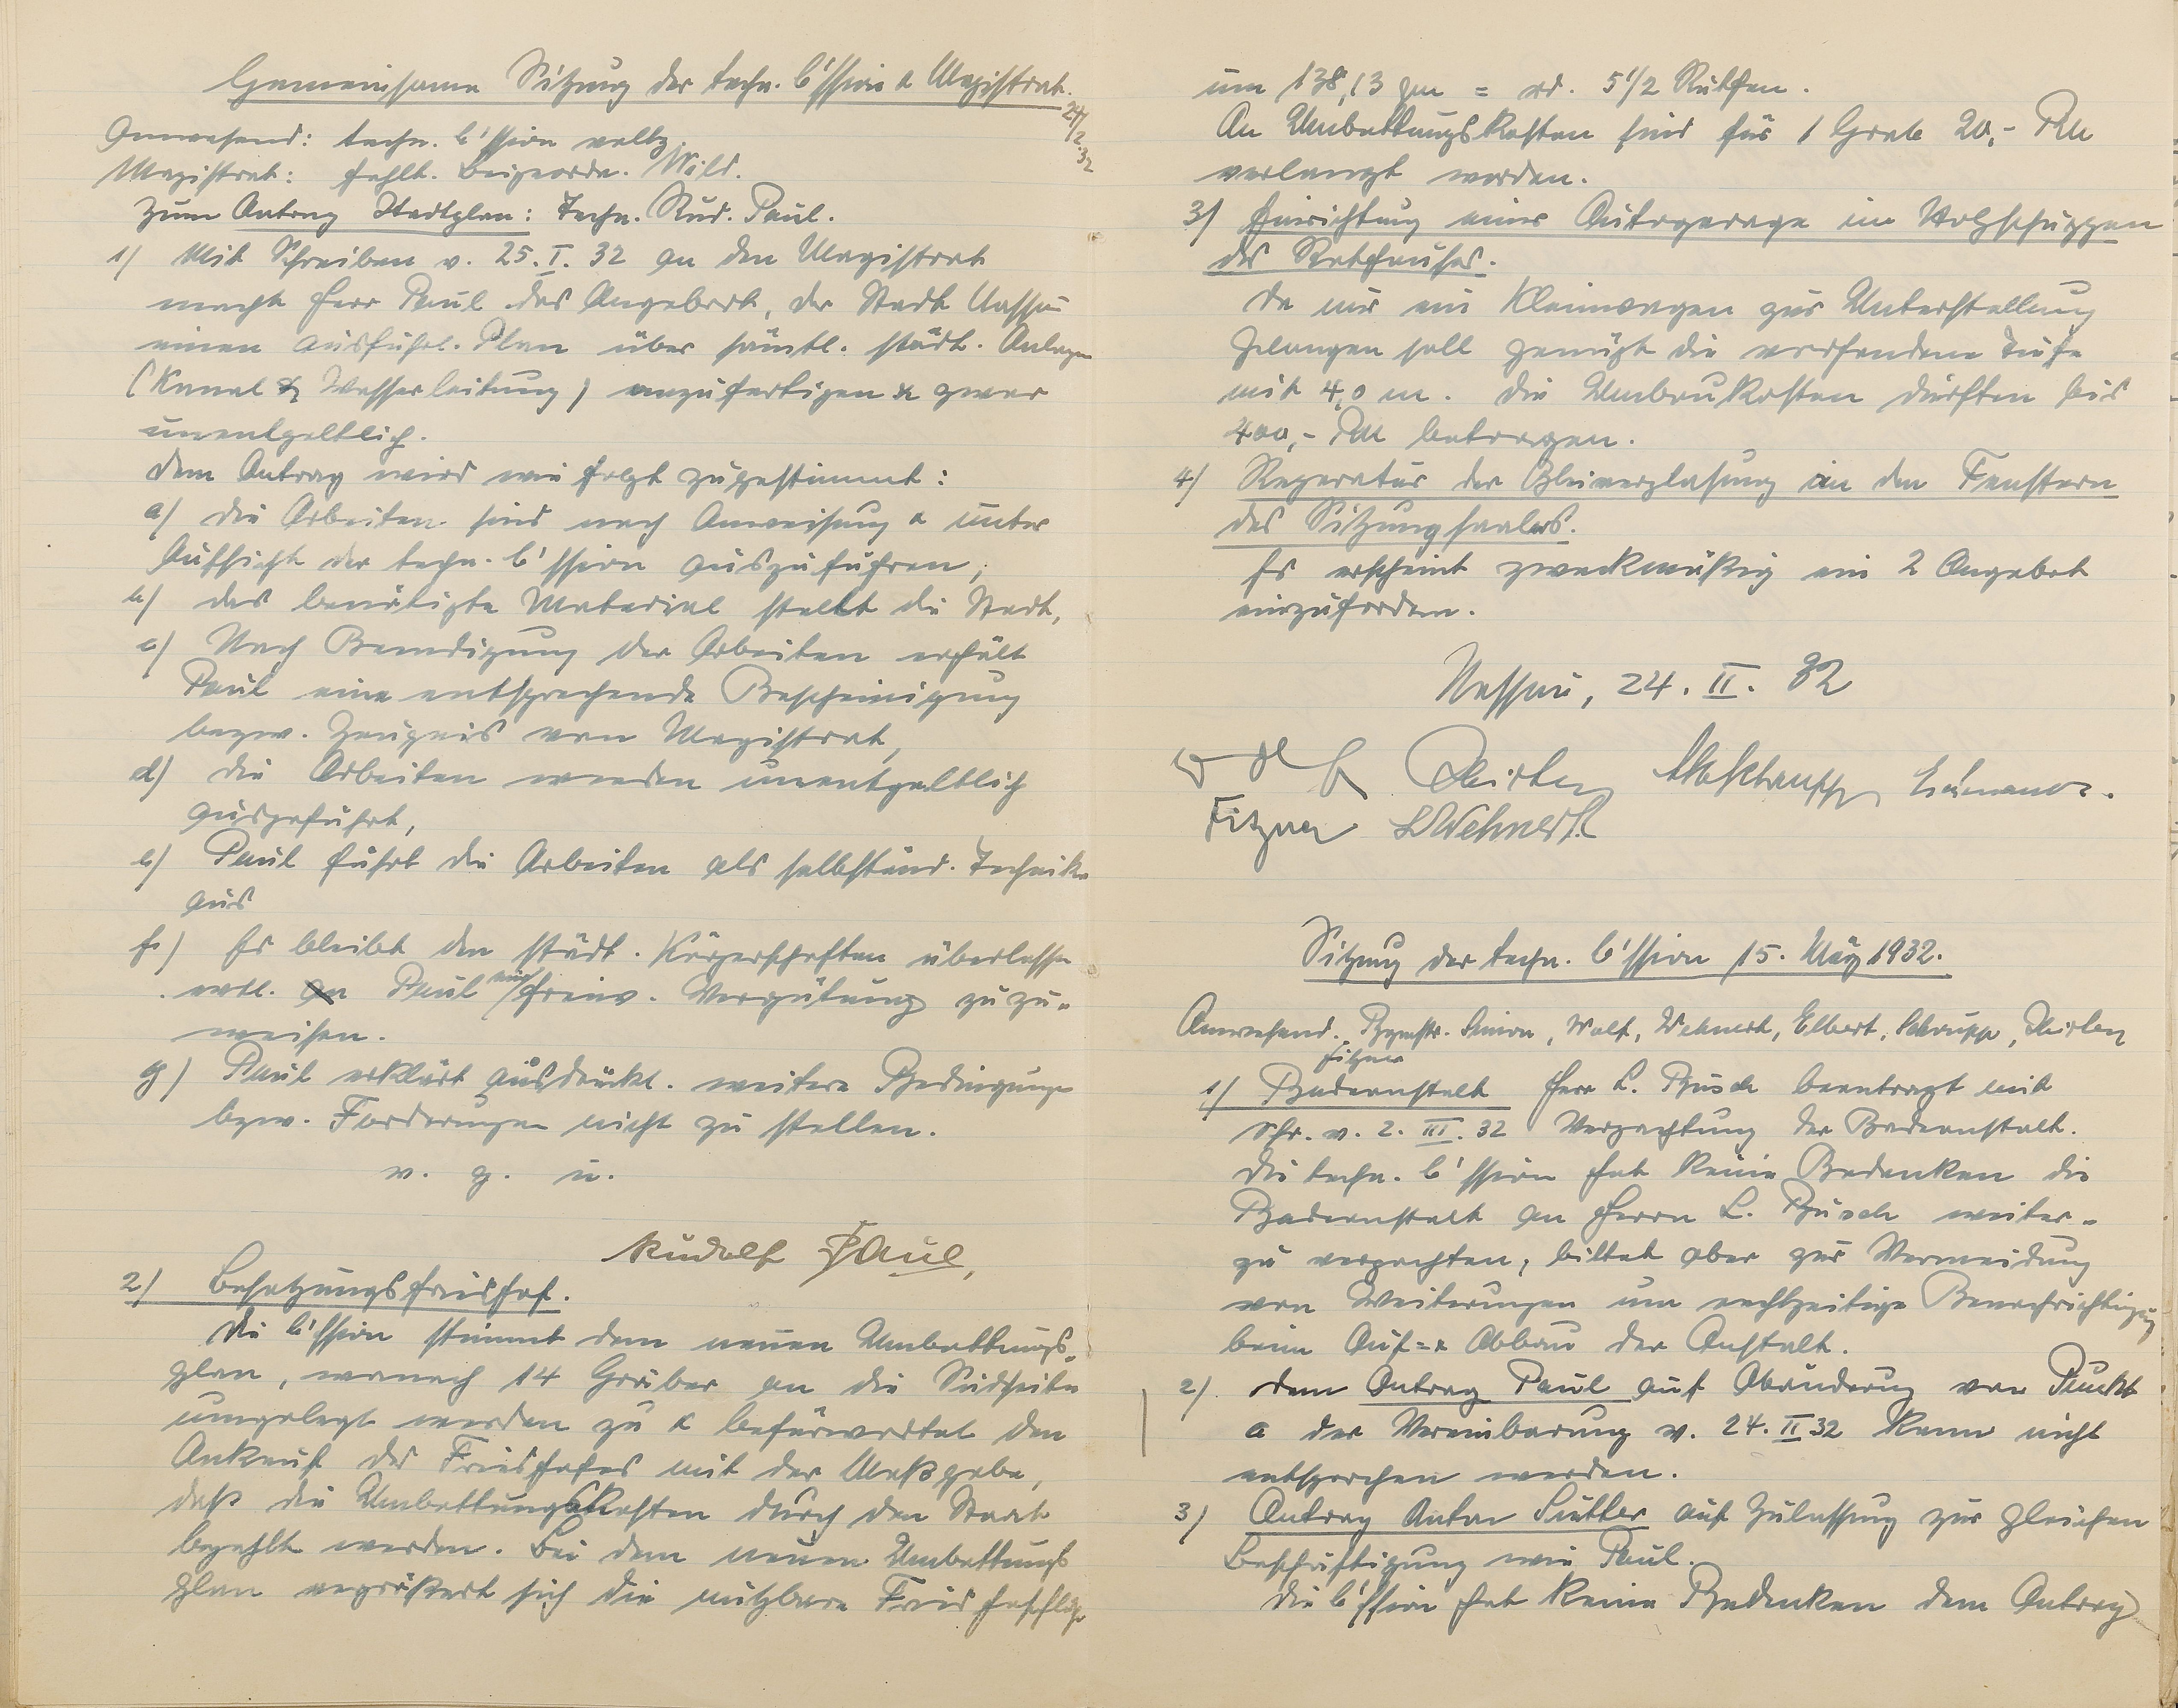 Gemeinsame Sitzung der techn. C'ssion & Magistrat.
24/2.32
Anwesend: techn. C'ssion vollz.
Magistrat: fehlt. Beigeordn. Wild.
Zum Antrag Stadtplan: Techn. Rud. Paul.
1) Mit Schreiben v. 25. I. 32 an den Magistrat
macht Herr Paul das Angebot, der Stadt Nassau
einen ausführl. Plan über sämtl. städt. Anlagen
(Kanal & Wasserleitung) anzufertigen & zwar
unentgeltlich.
Dem Antrag wird wie folgt zugestimmt:
a) Die Arbeiten sind nach Anweisung & unter
Aufsicht der techn. C'ssion auszuführen,
b) das benötigte Material stellt die Stadt,
c) Nach Beendigung der Arbeiten erhält
Paul eine entsprechende Bescheinigung
bezw. Zeugnis vom Magistrat,
d) Die Arbeiten werden unentgeltlich
ausgeführt,
e) Paul führt die Arbeiten als selbständ. Techniker
aus
f.) Es bleibt den städt. Körperschaften überlassen
evtl. an Paul eine freiw. Vergütung zuzu-
weisen.
g) Paul erklärt ausdrückl. weitere Bedingungen
bezw. Forderungen nicht zu stellen.
v. g. u.
Rudolf Paul,
2) Besatzungsfriedhof.
Die C'ssion stimmt dem neuen Umbettungs-
plan, wonach 14 Gräber an die Südseite
umgelegt werden zu & befürwortet den
Ankauf des Friedhofes mit der Maßgabe,
daß die Umbettungskosten durch den Staat
bezahlt werden. Bei dem neuen Umbettungs
plan vergrößert sich die nutzbare Friedhoffläche
um 138,13 qm = rd. 5 1/2 Ruthen.
An Umbettungskosten sind für 1 Grab 20,- RM
verlangt worden.
3) Einrichtung einer Autogarage im Holzschuppen
des Rathauses.
Da nur ein Kleinwagen zur Unterstellung
gelangen soll genügt die vorhandene Tiefe
mit 4,0 m. Die Umbaukosten dürften bis
400,- RM betragen.
4) Reparatur der Bleiverglasung in den Fenstern
des Sitzungssaales.
Es erscheint zweckmäßig ein 2 Angebot
einzufordern.
Nassau, 24. II. 32
Fitzner LWehnert
Sitzung der techn. C'ssion 15. März 1932.
Anwesend. Bgmstr. Simon, Wolf, Wehnert, Elbert, Schrupp,
Fitzner
1) Badeanstalt Herr L. Busch beantragt mit
Schr. v. 2. III. 32 Verpachtung der Badeanstalt.
Die techn. C'ssion hat keine Bedenken die
Badeanstalt an Herrn L. Busch weiter-
zu verpachten, bittet aber zur Vermeidung
von Weiterungen um rechtzeitige Benachrichtigung
beim Auf- & Abbau der Anstalt.
2) Dem Antrag Paul auf Abänderung von Punkt
a der Vereinbarung v. 24. II 32 kann nicht
entsprochen werden.
3) Antrag Anton Sutter auf Zulassung zur gleichen
Beschäftigung wie Paul.
Die C'ssion hat keine Bedenken dem Antrag